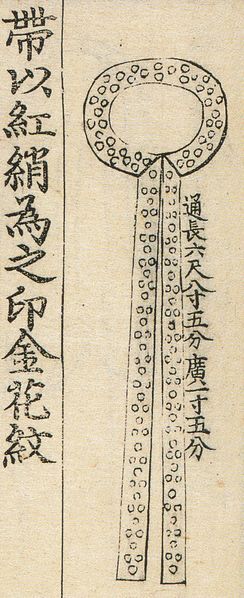 通長六尺八寸五分廣二寸五分
帶以紅綃為之印金花紋